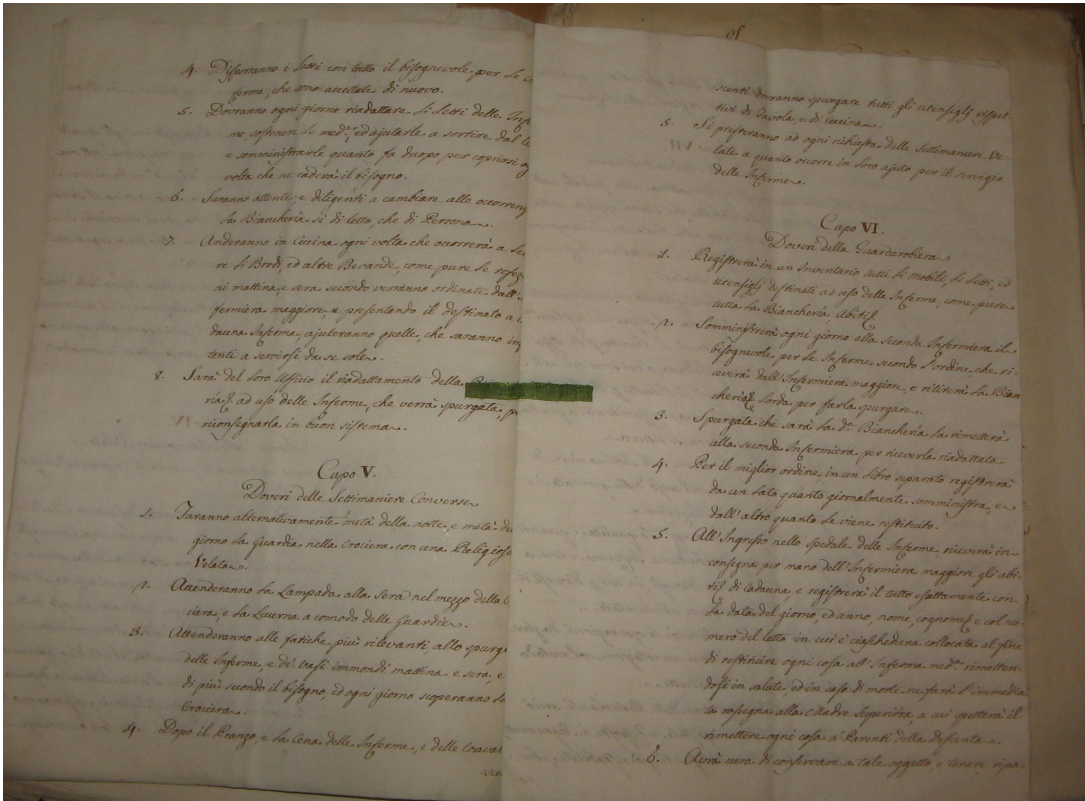 4. Disferranno i Letti con tutto il bisognevole per le
ferme, che sono accettate di nuovo.
5. Dovranno ogni giorno riadattare li Letti delle Infe
me, sostenere le med.e, ed ajutarle a sortire dal le
e somministrarle quanto fa duopo per coprirsi og
volta che ne caderà il bisogno.
6. Saranno attente, e diligenti a cambiare alle occorren
la Biancheria sì di letto, che di Persona.
7. Anderanno in Cucina ogni volta che occorrerà a
re li Brodi, ed altre Bevande, come pure le refez
ni mattina, e sera secondo verranno ordinate dall'
fermiera maggiore, e presentando il destinato a
dauna Inferma, ajuteranno quelle, che saranno im
tenti a servirsi da se sole.
8. Sarà del loro Ufficio il riadattamento della
ria ad uso delle Inferme, che verrà spurgata, p
riconsegnarla in buon sistema.
Capo V.
Doveri delle Settimaniere Converse
1. Faranno alternativamente metà della notte, e metà de
giorno la Guardia nella Crociera con una Religiosa
Velata.
2. Attenderanno la Lampada alla sera nel mezzo della C
ciera, e la Lucerna a comodo delle Guardie.
3. Attenderanno alle fatiche più rilevanti allo spurg
delle Inferme, e de' vasi immondi mattina e sera, e
di più secondo il bisogno, ed ogni giorno scoperanno la
Crociera.
4. Dopo il Pranzo, e la Cena delle Inferme, e delle Conva
sce
scenti dovranno spurgare tutti gli utensigli rispet
tivi di Tavola, e di Cucina.
5. Si presteranno ad ogni richiesta delle Settimaniere Ve-
late a quanto ocorre in loro ajuto per il servigio
delle Inferme.
Capo VI.
Doveri della Guardarobiera
1. Registrerà in un Inventario tutti li mobili, li Letti, ed
utensigli destinati ad uso delle Inferme, come pure
tutta la Biancheria, Abiti
2. Somministrerà ogni giorno alla seconda Infermiera il
bisognevole per le Inferme, secondo l'ordine, che ri-
ceverà dall'Infermiera maggiore, e ritirerà la Bian
cheria lorda per farla spurgare.
3. Spurgata che sarà la d.a Biancheria la rimetterà
alla seconda Infermiera per riceverla riadattata.
4. Per il miglior ordine in un libro separato registrerà
da un lato quanto giornalmente somministra, e
dall'altro quanto le viene restituito.
5. All'Ingresso nello Spedale delle Inferme riceverà in
consegna per mano dell'Infermiera maggiore gli abi-
ti di caduna, e registrerà il tutto esattamente con
la data del giorno, ed anno, nome, cognome, e col nu-
mero del letto in cui è ciascheduna collocata al fine
di restituire ogni cosa all'Inferma med.a rimetten-
dosi in salute, ed in caso di morte ne farà l'immedia
ta rassegna alla Madre Superiora, a cui spetterà il
rimettere ogni cosa a' Parenti della defunta.
6. Avrà cura di conservare a tale oggetto, e tenere ripo-